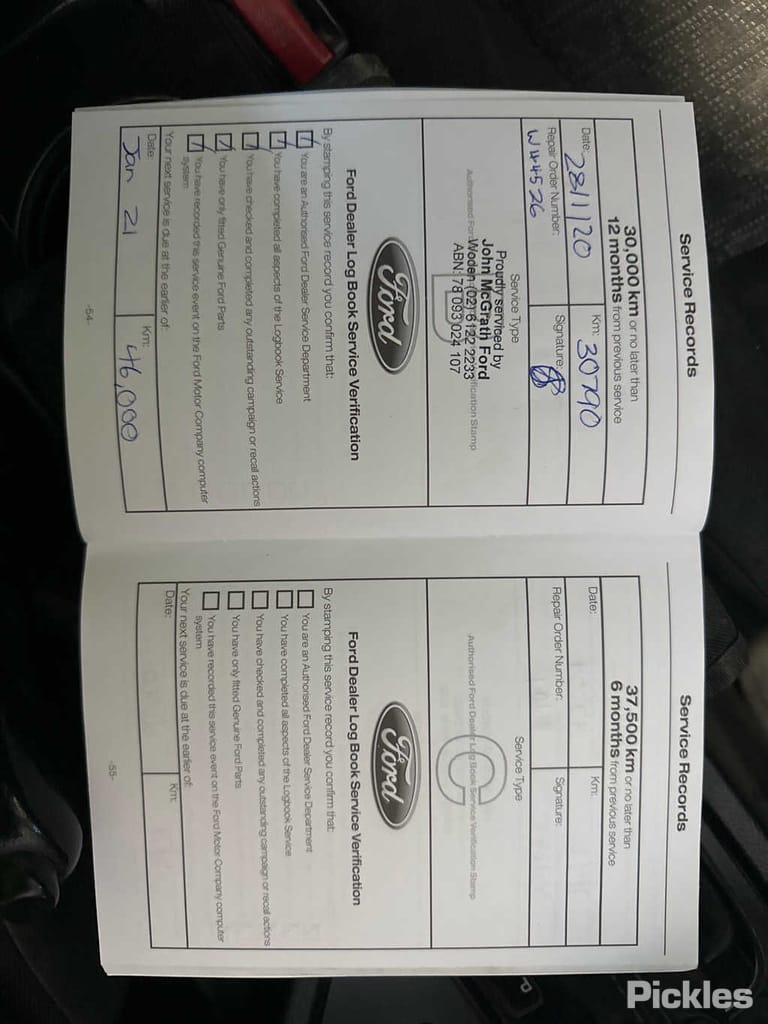 Service Records
30,000 km or no later than
12 months from previous service
Date: 28/1/20
Km: 30790
Repair Order Number: W44526
Signature:
Service Type
Proudly serviced by
John McGrath Ford
Woden (02) 6122 2233
ABN: 78 093 024 107
Ford
Ford Dealer Log Book Service Verification
By stamping this service record you confirm that:
You are an Authorised Ford Dealer Service Department
You have completed all aspects of the Logbook Service
You have checked and completed any outstanding campaign or recall actions
You have only fitted Genuine Ford Parts
You have recorded this service event on the Ford Motor Company computer
system
Your next service is due at the earlier of:
Date: Jan 21
Km: 46,000
-54-
Service Records
37,500 km or no later than
6 months from previous service
Date:
Km:
Repair Order Number:
Signature:
Service Type
C
Authorised Ford Dealer Log Book Service Verification Stamp
Ford
Ford Dealer Log Book Service Verification
By stamping this service record you confirm that:
You are an Authorised Ford Dealer Service Department
You have completed all aspects of the Logbook Service
You have checked and completed any outstanding campaign or recall actions
You have only fitted Genuine Ford Parts
You have recorded this service event on the Ford Motor Company computer
system
Your next service is due at the earlier of:
Date:
Km:
-55-
Pickles